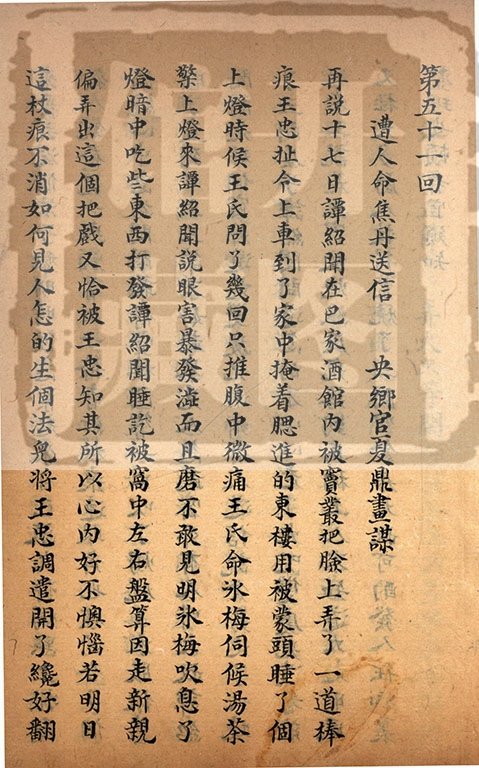 第五十一回
遭人命焦丹送信　央鄉官夏鼎畫謀
再說十七日譚紹聞在巴家酒館內被竇叢把臉上弄了一道棒
痕王忠扯令上車到了家中掩着腮進的東樓用被蒙頭睡了個
上燈時候王氏問了幾回只推腹中微痛王氏命氷梅伺候湯茶
擎上燈來譚紹聞說眼害暴發澁而且磨不敢見明氷梅吹息了
燈暗中吃些東西打發譚紹聞睡訖被窩中左右盤算因走新親
偏弄出這個把戲又恰被王忠知其所以心內好不懊惱若明日
這杖痕不消如何見人怎的生個法兒將王忠調遣開了纔好翻